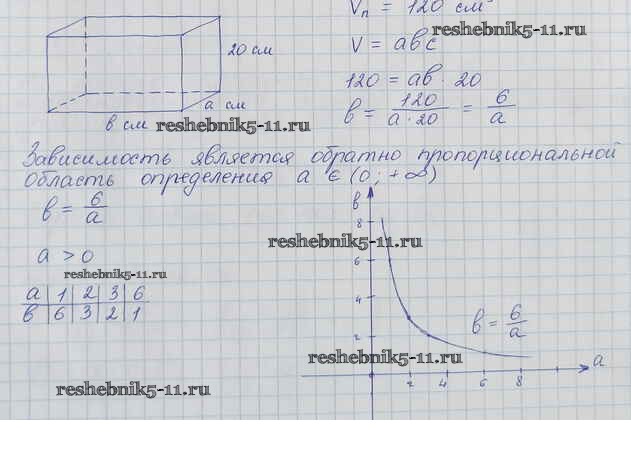 Vп = 120 см
20 см
а см
в см
V = авс
120 = ав · 20
в = 120 / а · 20 = 6 / а
reshebnik5-11.ru
reshebnik5-11.ru
Зависимость является обратно пропорциональной
Область определения а ∈ (0; +∞)
в = 6 / а
а > 0
reshebnik5-11.ru
а 1 2 3 6
в 6 3 2 1
reshebnik5-11.ru
reshebnik5-11.ru
в
8
6
4
2
в = 6 / а
reshebnik5-11.ru
2 4 6 8 а